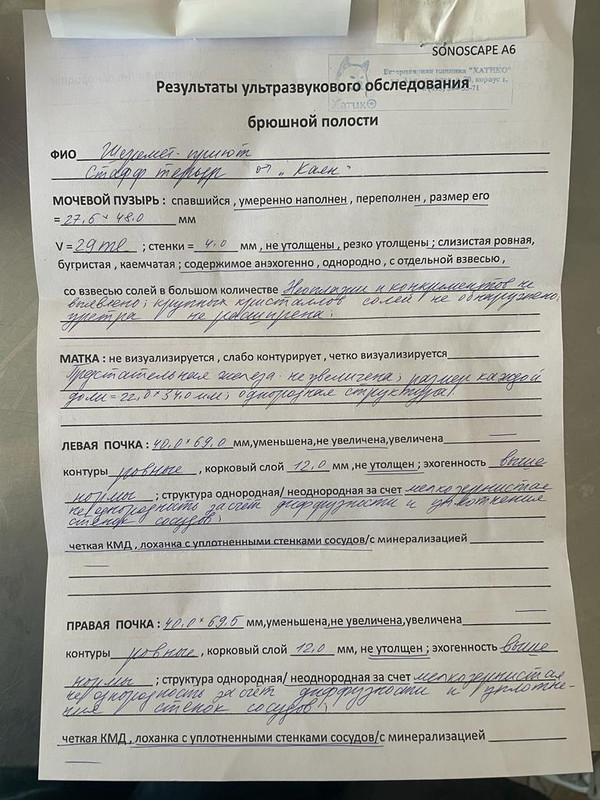 SONOSCAPE A6
Ветеринарная клиника "ХАТИКО"
ХатикО
Результаты ультразвукового обследования
брюшной полости
ФИО Шеремет- приют
Стафф терьер "Каен"
МОЧЕВОЙ ПУЗЫРЬ : спавшийся , умеренно наполнен , переполнен , размер его
= 27,5 × 48,0 мм
V = 29 ml ; стенки = 4,0 мм , не утолщены , резко утолщены ; слизистая ровная,
бугристая , каемчатая ; содержимое анэхогенно , однородно , с отдельной взвесью ,
со взвесью солей в большом количестве Неоплазии и конкрементов не
выявлено; крупных кристаллов солей не обнаружено;
уретра не расширена.
МАТКА : не визуализируется , слабо контурирует , четко визуализируется
Предстательная железа не увеличена; размер каждой
доли = 22,0 × 34,0 мм; однородная структура.
ЛЕВАЯ ПОЧКА : 40,0 × 69,0 мм,уменьшена,не увеличена,увеличена
контуры ровные , корковый слой 12,0 мм , не утолщен ; эхогенность выше
нормы ; структура однородная/ неоднородная за счет мелкозернистая
неоднородность за счет диффузности и уплотнения
стенок сосудов;
четкая КМД , лоханка с уплотненными стенками сосудов/с минерализацией
ПРАВАЯ ПОЧКА : 40,0 × 69,5 мм,уменьшена,не увеличена,увеличена
контуры ровные , корковый слой 12,0 мм , не утолщен ; эхогенность выше
нормы ; структура однородная/ неоднородная за счет мелкозернистая
неоднородность за счет диффузности и уплотне-
ния стенок сосудов;
четкая КМД , лоханка с уплотненными стенками сосудов/с минерализацией